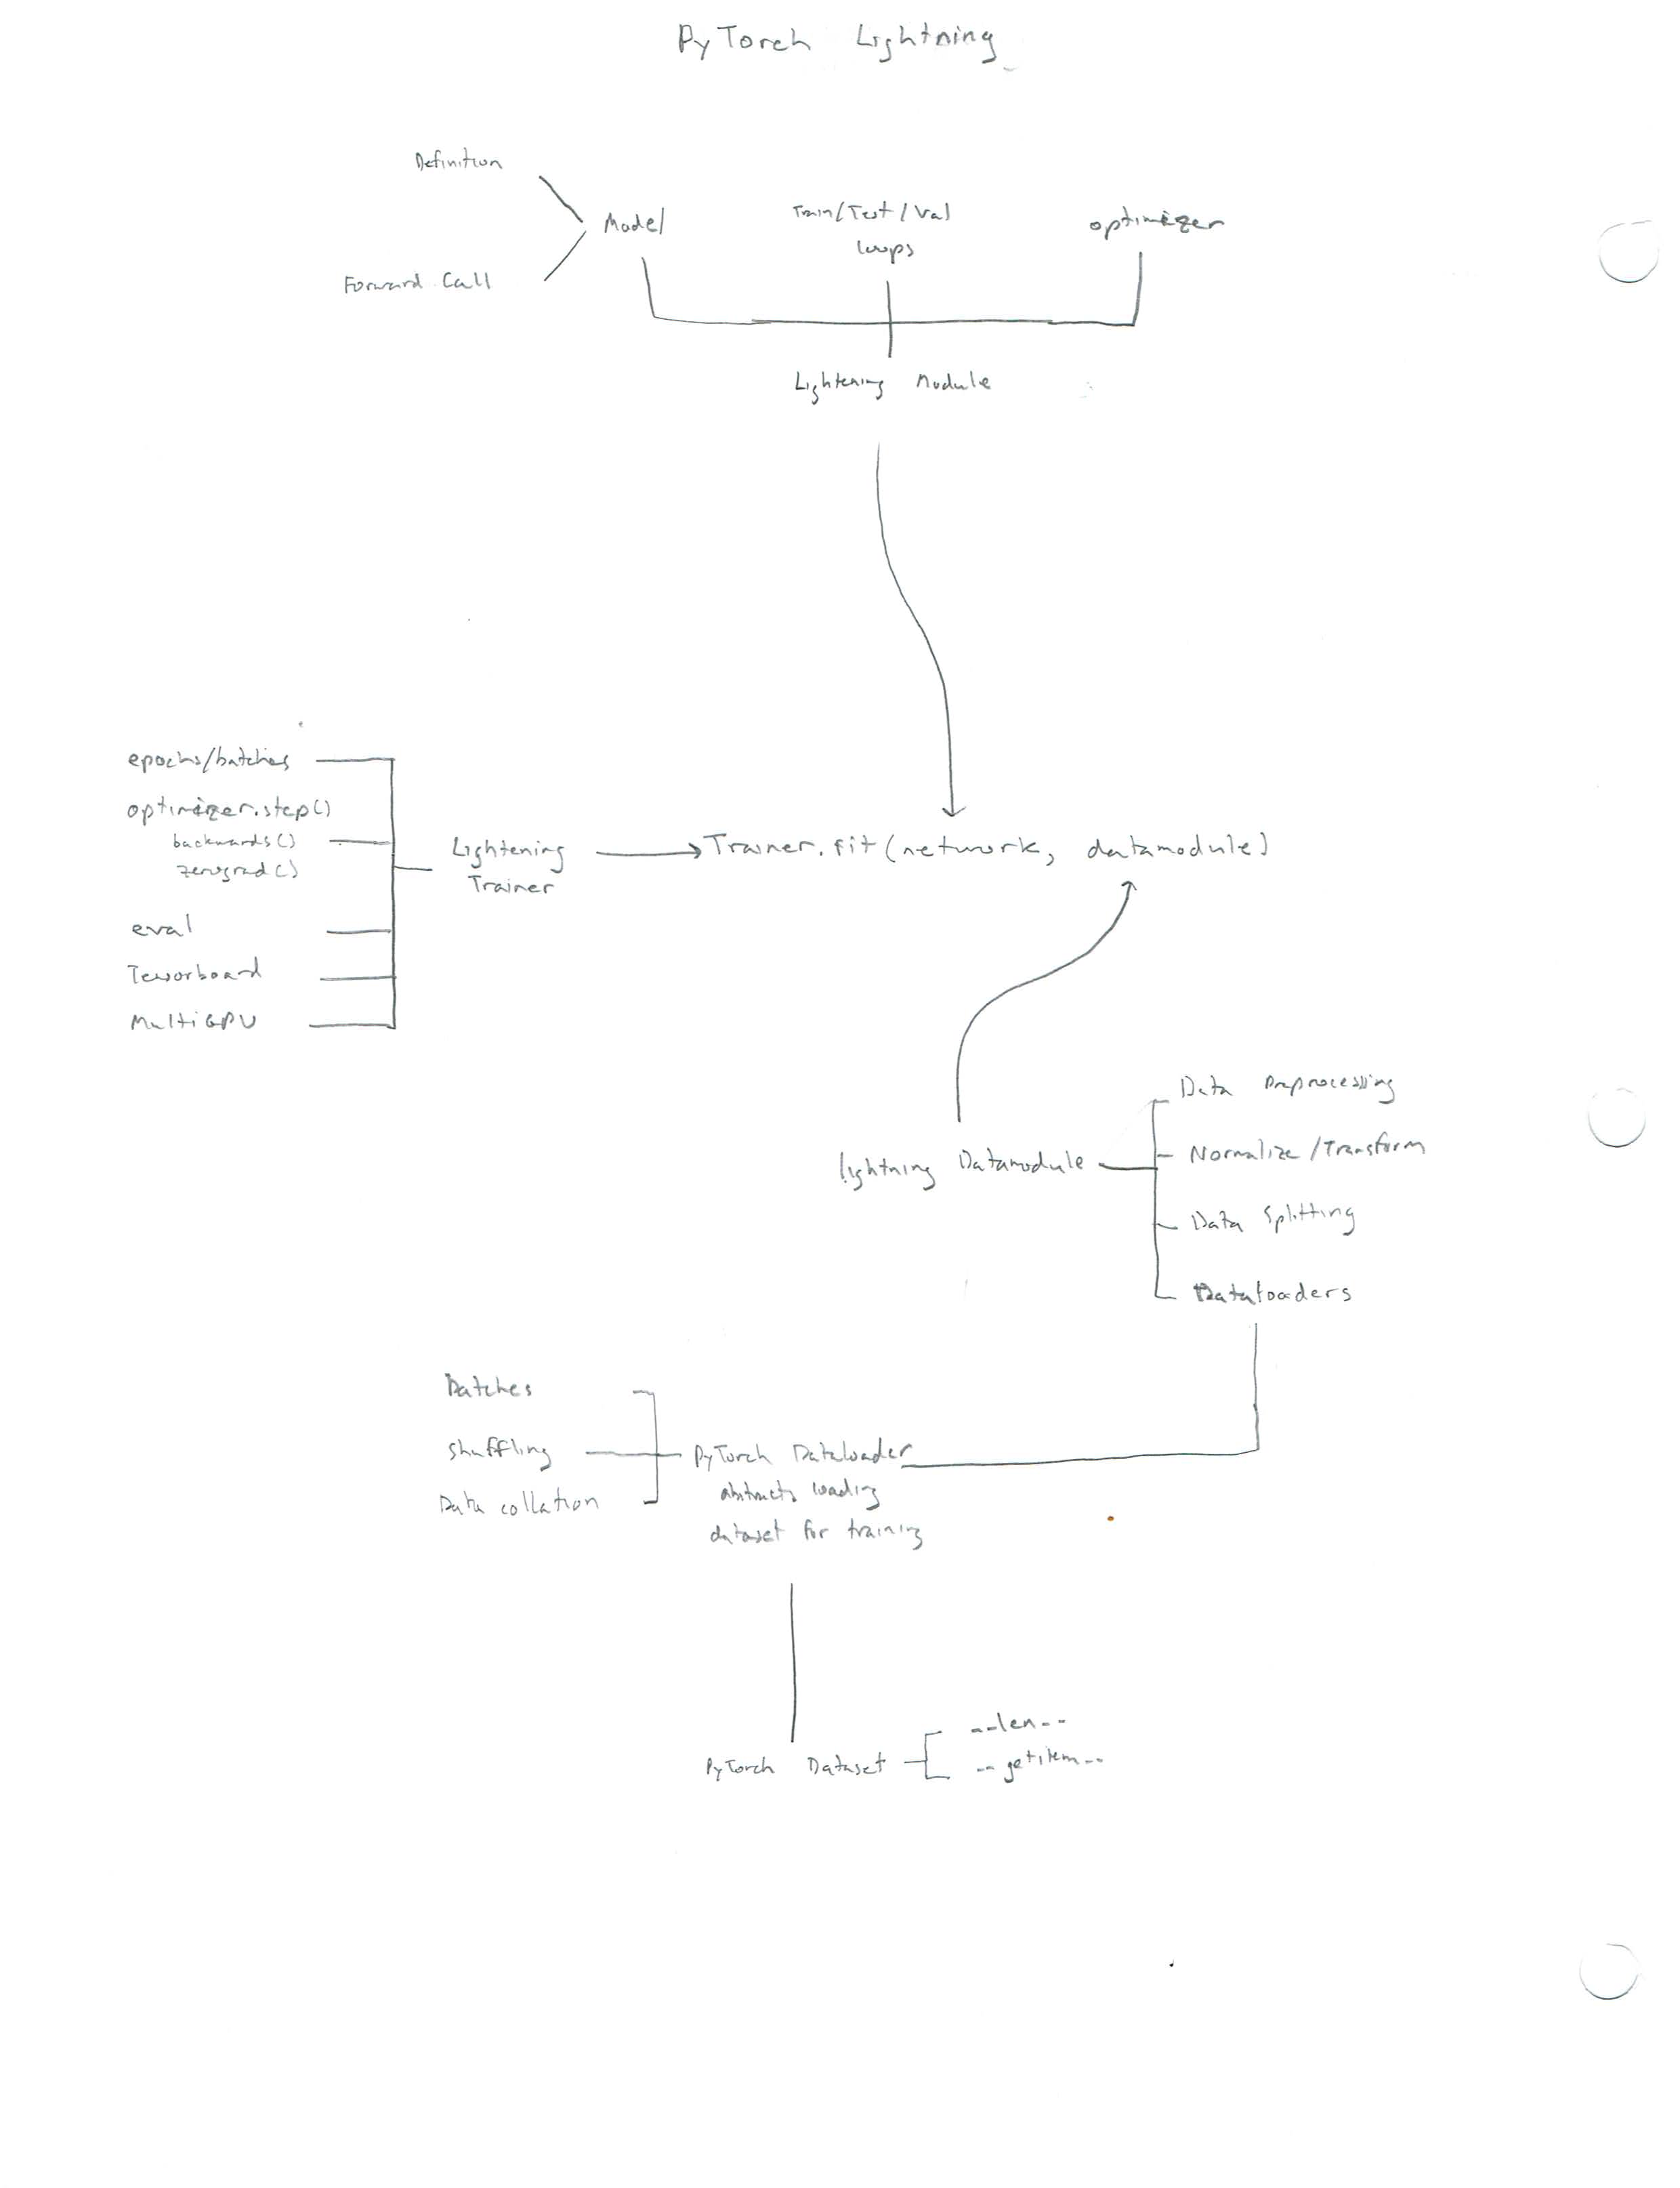 PyTorch Lightning
Definition
Model
Train/Test/Val
loops
optimizer
Forward Call
Lightening Module
epochs/batches
optimizer.step()
backwards()
zerograd()
eval
Tensorboard
MultiGPU
Lightening
Trainer
Trainer.fit(network, datamodule)
lightning Datamodule
Data Preprocessing
Normalize/Transform
Data Splitting
Dataloaders
Batches
shuffling
Data collation
PyTorch Dataloader
abstracts loading
dataset for training
PyTorch Dataset
__len__
__getitem__